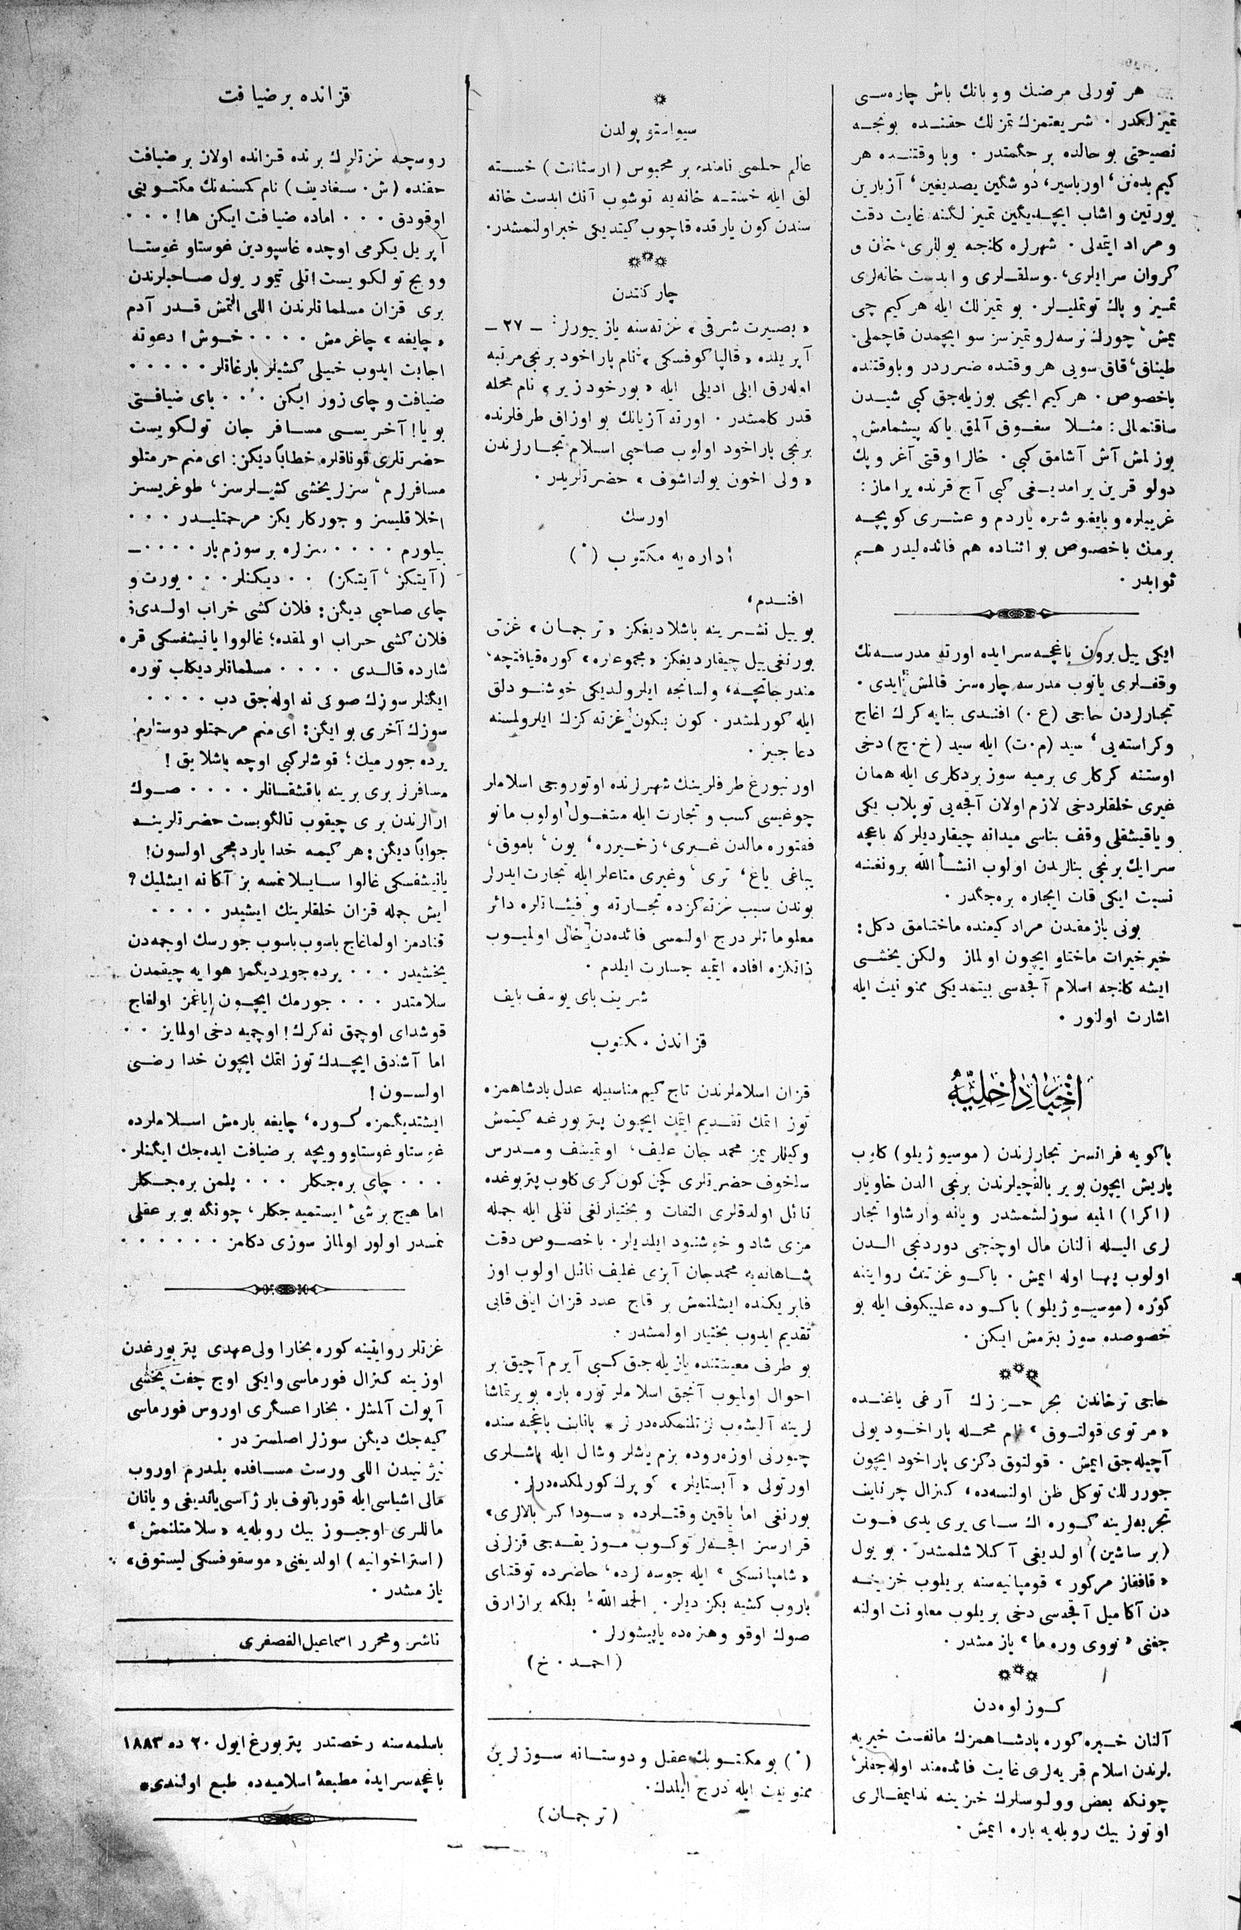 هر تورلی مرضنك و وبانك باش چاره‌سی
تمیزلكدر. شریعتمزك تمزلك حقنده بونجه
نصیحتی بو حالده بر حكمتدر. وبا وقتنده هر
كیم بدنن، اورباسیر، دوشگین یصدیغین، آزبارین
یورتین و اشاب ایچه‌دیگین تمیز لگنه غایت دقت
و مراد ایتملی. شهرلره كلنجه یوللری، خان و
كروان سرایلری، وسلقلری و ابدست خانه‌لری
تمیز و پاك توتملیلر. بو تمیزلك ایله هر كیم چی
یمش، چورك نرسه‌لر و تمیز سز سو ایچمدن قاچملی.
طیناق، قاق سویی هر وقتده ضرردر و با وقتنده
باخصوص. هر كیم ایچی بوزیله‌جق كبی شیدن
ساقنمالی: مثلا سغوق آلمق یا كه پیشمامش
بوزلمش آش آشامق كبی. خالرا وقتی آغر و پك
دولو قرین یرامدیغی كبی آج قرنده یراماز:
غریبلره و بایغوشره یاردم و عشری كوپچه
برمك باخصوص بو اثناده هم فائده‌لیدر هم
ثوابدر.
ایكی ییل برون باغچه‌سرایده اورته مدرسه‌نك
وقفلری یانوب مدرسه چاره‌سز قالمش ایدی.
تجارلردن حاجی (ع.) افندی بنایه كرك اغاج
و كراسته‌یی، سید (م.ت) ایله سید (خ.چ) دخی
اوستنه كركلری برمیه سوز بردكلری ایله همان
غیری خلقلردخی لازم اولان آقچه‌یی توپلاب یكی
و یاقیشقلی وقف بناسی میدانه چیقاردیلر كه باغچه
سرایك برنجی بنالردن اولوب انشأ الله برونغسنه
نسبت ایكی قات ایجاره بره‌جگدر.
بونی یازمقدن مراد كیمنده ماختامق دكل:
خیر خیرات ماختاو ایچون اولماز ولكن یخشی
ایشه كلنجه اسلام آقچه‌سی بیتمدیكی ممنونیت ایله
اشارت اولنور.
أخبار داخلیّه
باكویه فرانسز تجارلرندن (موسیو ژیلو) كلوب
پاریش ایچون بو یر بالقچیلرندن برنجی الدن خاویار
(اكرا) المیه سوزلشمشدر و یانه وارشاوا تجار
لری الیله آلنان مال اوچنجی دوردنجی الدن
اولوب پها اوله ایمش. باكو غزتنك روایتنه
كوره (موسیو ژیلو) باكوده علیبكوف ایله بو
خصوصده سوز بترمش ایكن.
حاجی ترخاندن بحر حزرك آرغی یاغنده
«مرتوی قولتوق» نام محله پاراخود یولی
آچیله‌جق ایمش. قولتوق دكزی پاراخود ایچون
جوررلك توكل ظن اولنسه‌ده، كنرال چرنایف
تجربه‌لرینه كوره اك سای یری یدی فوت
(بر ساشین) اولدیغی آكلاشلمشدر. بو یول
«قافقاز مركور» قومپانیه‌سنه بریلوب خزینه
دن آكا میل آقچه‌سی دخی بریلوب معاونت اولنه
جغنی «نووی وره‌ما» یازمشدر.
كوزلوه‌دن
آلنان خبره كوره پادشاهمزك مانفست خیریه
لرندن اسلام قریه‌لری غایت فائده‌مند اوله‌جقلر،
چونكه بعض وولوسلرك خزینه نداییمقالری
اوتوز بیك روبله‌یه باره ایمش.
سیواستوپولدن
عالم حلمی نامنده بر محبوس (ارستانت) خسته
لق ایله خسته خانه‌یه توشوب آنك ابدست خانه
سندن كون یارقده قاچوب كیتدیكی خبر اولنمشدر.
چاركنتدن
«بصیرت شرقی» غزته‌سنه یازیبورلر: — ۲۷ —
آپریلده «قالپاكوفسكی» نام پاراخود برنجی مرتبه
اوله‌رق ایلی ادیلی ایله «بورخودزیر» نام محله
قدر كلمشدر. اورته آزیانك بو اوزاق طرفلرنده
برنجی پاراخود اولوب صاحبی اسلام تجارلرندن
«ولی اخون یولداشوف» حضرتلریدر.
اورسك
اداره‌یه مكتوب (*)
افندم،
بو ییل نشرینه باشلادیغكز «ترجمان» غزتی
بورنغی ییل چیقاردیغكز «مجموعه» كوره قیافتچه،
مندرجاتچه، و لسانجه ایلرولدیكی خوشنودلق
ایله كورلمشدر. كون بیكون غزته‌كزك ایلرولمسنه
دعاجیز.
اورنبورغ طرفلرینك شهرلرنده اوتوروجی اسلاملر
چوغیسی كسب و تجارت ایله مشغول اولوب مانو
فقتوره مالدن غیری، زخیره، یون، یاموق،
یباغی یاغ، تری، و غیری متاعلر ایله تجارت ایدرلر
بوندن سبب غزته‌كزده تجارته و فیئاتلره دائر
معلوماتلر درج اولنمسی فائده‌دن خالی اولمیوب
ذاتكزه افاده ایتمیه جسارت ایلدم.
شریف‌بای یوسف بایف
قزاندن مكتوب
قزان اسلاملرندن تاج كیم مناسبیله عدل پادشاهمزه
توز اتمك تقدیم ایتمك ایچون پتربورغه كیتمش
وكیللریمز محمد جان علیف، اوتمیشف و مدرس
ساخوف حضرتلری كچن كون كری كلوب پتربوغده
نائل اولدقلری التفات و بختیارلغی نقلی ایله جمله
مزی شاد و خوشنود ایلدیلر. باخصوص دقت
شاهانه‌یه محمدجان آبزی علیف نائل اولوب اوز
فابریكنده ایشلنمش بر قاچ عدد قزان ایاق قابی
تقدیم ایدوب بختیار اولمشدر.
بو طرف معیشتنده یازیله‌جق كبی آیرم آچیق بر
احوال اولمیوب آنجق اسلاملر توره باره بویر تماشا
لرینه آلیشوب نزتلنمكده‌درلر. پانایف باغچه‌سنده
چتورنی اوزه‌روده بزم یاشلر و شال ایله باشلری
اورتولی «آبستایلر» كوپرك كورلمكده‌درلر.
بورنغی اما یاقین وقتلرده «سوداكر بالالری»
قرارسز اقچه‌لر توكوب موزیقه‌جی قزلرنی
«شامپانسكی» ایله جوسه لرده، حاضرده توقتای
باروب كشیه بكزدیلر. الحمد الله! بلكه برازارق
صوك اوقو و هنزه‌ده یاپیشورلر.
(احمد. خ)
(*) بو مكتوبك عقل و دوستانه سوزلرین
ممنونیت ایله درج ایلدك.
(ترجمان)
قزانده بر ضیافت
روسچه غزتلرك برنده قزانده اولان بر ضیافت
حقنده (ش. سغادیف) نام كمسنه‌نك مكتوبنی
اوقودق... اماده ضیافت ایكن ها!...
آپریل یكرمی اوچده غاسپودین غوستاو غوستا
وویچ تولكویست اتلی تیمور یول صاحبلرندن
بری قزان مسلمانلرندن اللی التمش قدر آدم
«چایغه» چاغرمش.... خوش! دعوته
اجابت ایدوب خیلی كشیلر بارغانلر.....
ضیافت و چای زور ایكن... بای ضیافتی
بویا! آخریسی مسافر جان تولكویست
حضرتلری قوناقلره خطاباً دیكن: ای منم حرمتلو
مسافرلرم، سزلر یخشی كشیلرسز، طوغریسز
اخلاقلیسز و جوركلریكز مرحمتلیدر...
بیلورم.... سزلره بر سوزم بار....—
(آیتكز، آیتكز).. دیكنلر... یورت و
چای صاحبی دیگن: فلان كشی خراب اولدی؛
فلان كشی خراب اولمقده؛ غالووا یانیشفسكی قره
شارده قالدی.... مسلمانلر دیكلب توره
ایگنلر سوزك صوكی نه اوله‌جق دب....
سوزك آخری بو ایگن: ای منم مرحمتلو دوستلرم
یرده جورمیك، قوشلر كبی اوچه باشلایق!
مسافرلر بری برینه باقشقانلر.... صوك
ارالرندن بری چیقوب تالگویست حضرتلرینه
جواباً دیگن: هر كیمه خدا یاردمچی اولسون!
یانیشفسكی غالوا سایلانمسه بز آكا نه ایشلیك؟
ایش جمله قزان خلقلرینك ایشیدر....
قنادمز اولماغاج باسوب باسوب جورسك اوچمه‌دن
یخشیدر... یرده جوردیگمز هوایه چیقمدن
سلامتدر... جورمك ایچون ایاغمز اولغاج
قوشدای اوچمق نه كرك! اوچمیه دخی اولمایز..
اما آشادق ایچدك توز اتمك ایچون خدا رضی
اولسون!
ایشتدیگمزه كوره، چایغه بارمش اسلاملرده
غوستاو غوستاوویچه بر ضیافت ایده‌جك ایگنلر.
... چای بره‌جكلر... پلمن بره‌جكلر
اما هیچ بر شیء ایستمیه جكلر، چونگه بو یر عقلی
نمسدر اولور اولماز سوزی دكلمز......
غزتلر روایتینه كوره بخارا ولی عهدی پتربورغدن
اوزینه كنرال فورماسی و ایكی اوچ جفت یخشی
آپولت آلمشلر. بخارا عسگری اوروس فورماسی
كیه‌جك دیگن سوزلر اصلسز در.
نیژنیدن اللی ورست مسافده یلدرم اوروب
مالی اشیاسی ایله قورباتوف بارژاسی یاندیغی و یانان
ماللری اوجیوز بیك روبله‌یه «سلامتلنمش»
(استراخوانیه) اولدیغنی «موسقوفسكی لیستوق»
یازمشدر.
ناشر و محرر اسماعیل الغصفری
باسلمه‌سنه رخصتدر پتربورغ ایول ۲۰ ده ۱۸۸۳
باغچه‌سرایده مطبعۀ اسلامیه‌ده طبع اولندی